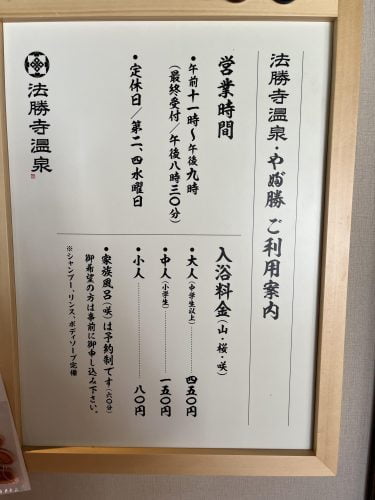 法勝寺温泉・やぶ勝 ご利用案内
営業時間
・午前十一時〜午後九時
(最終受付/午後八時三〇分)
・定休日/第二、四水曜日
入浴料金(山・桜・咲)
・大人(中学生以上)………四五〇円
・中人(小学生)………一五〇円
・小人………八〇円
・家族風呂(咲)は予約制です(六〇分)
御希望の方は事前に御申し込み下さい。
※シャンプー、リンス、ボディソープ完備
法勝寺温泉